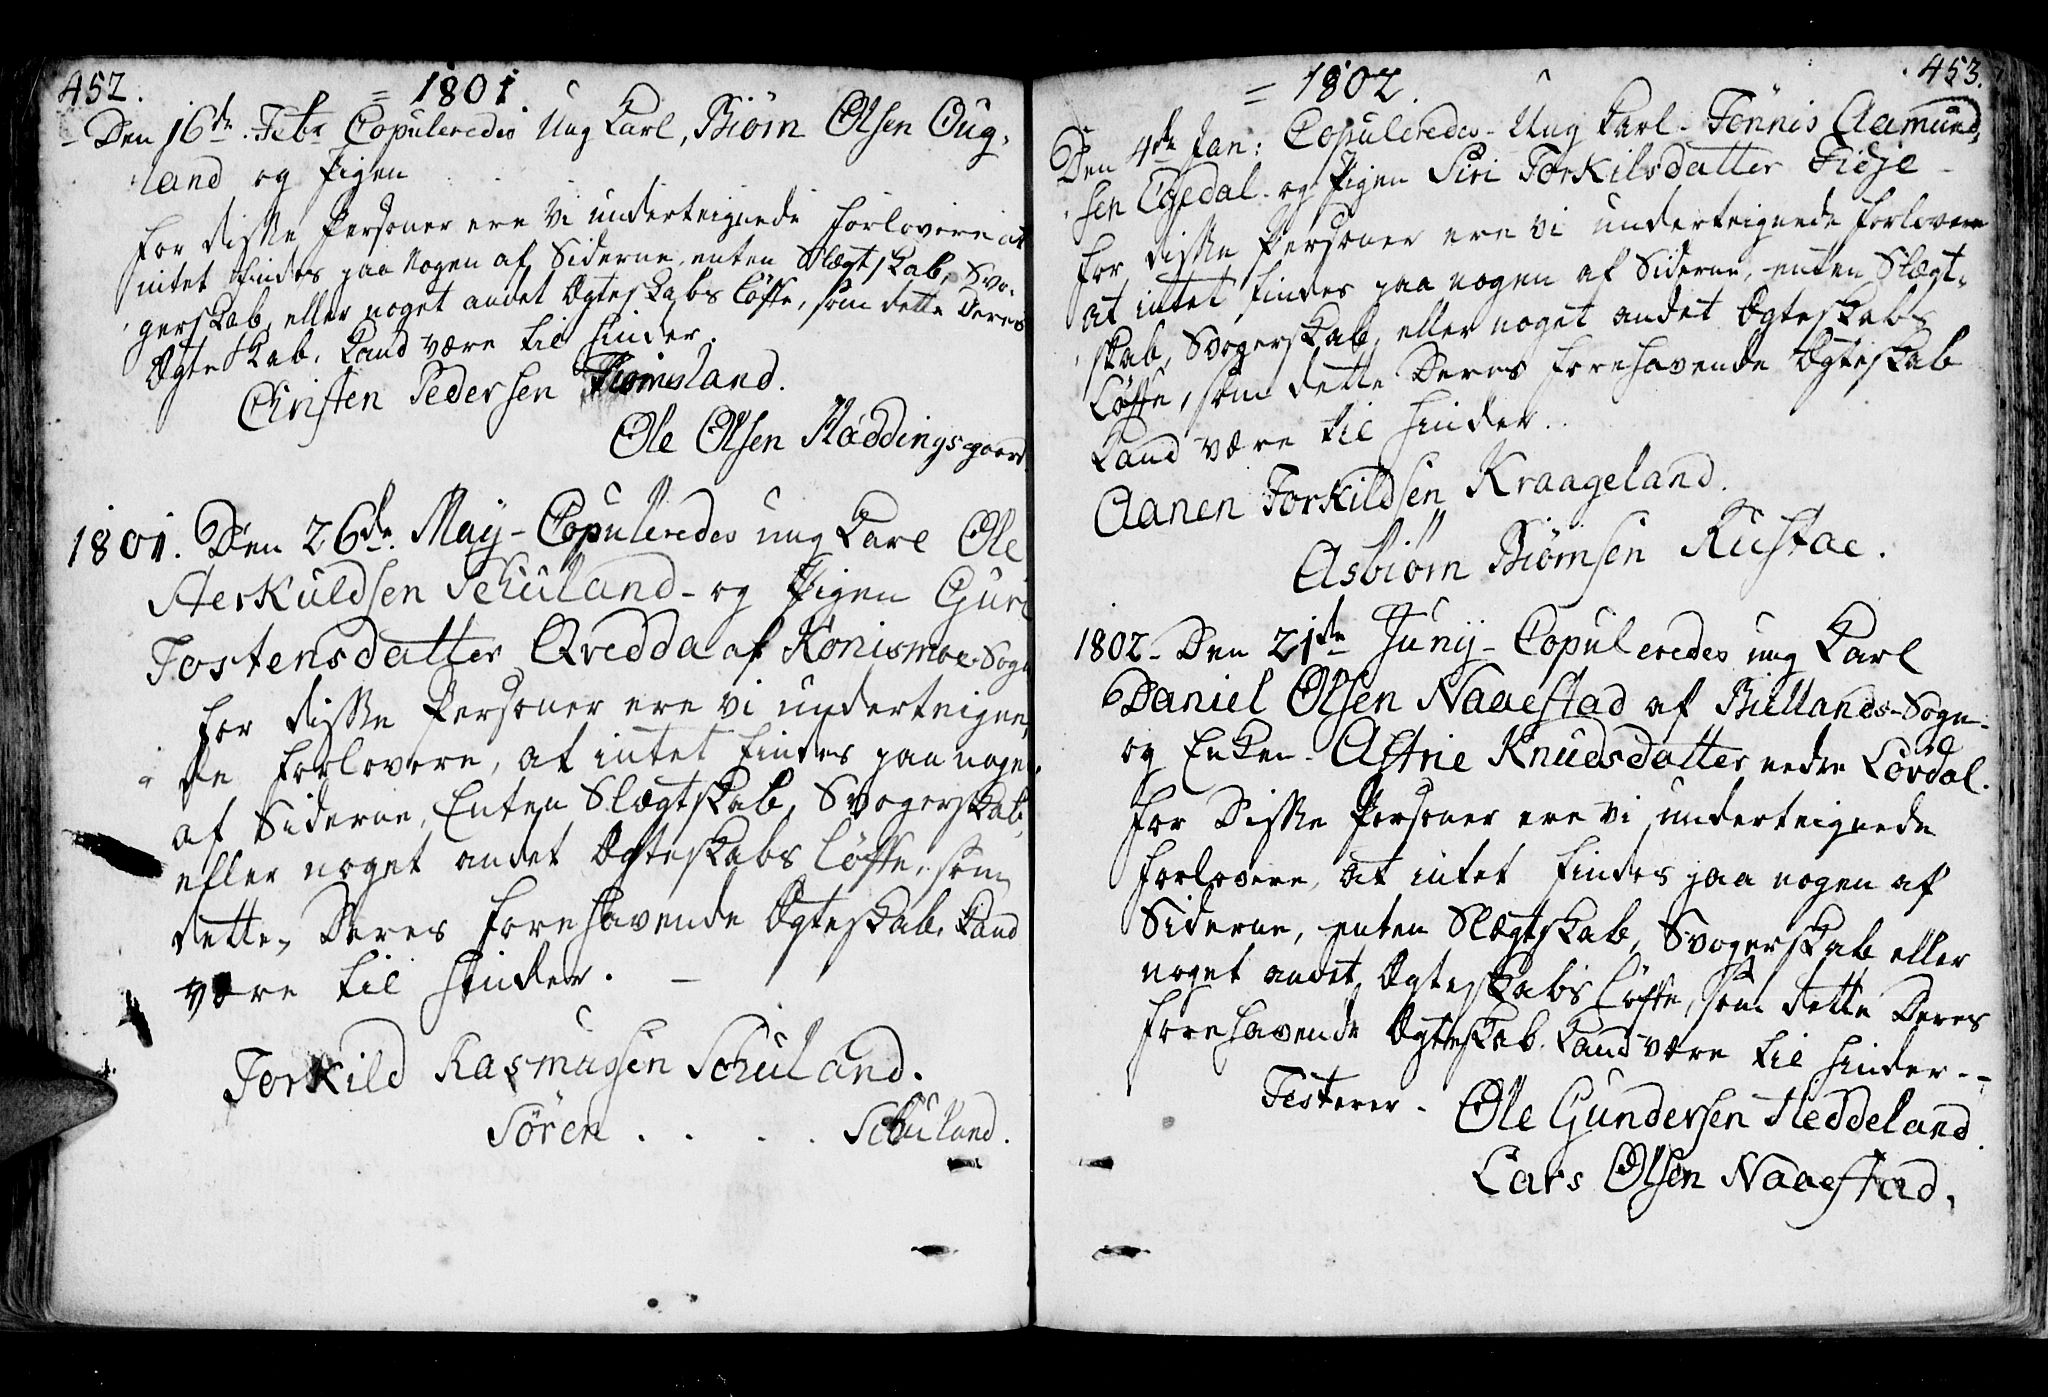 452.
= 1801.
Den 16de Febr Copuleredes Ung Karl, Biörn Olsen Oug-
land og Pigen
for disse Personer ere Vi underteignede forlovere at
intet findes paa Nogen af Siderne, enten Slægtskab, Svo-
gerskab, eller noget andet Ægteskabs Löffte, som dette deres
Ægteskab, kand være til hinder.
Christen Pedersen Homesland.
Ole Olsen Haddingsgaard
1801. Den 26de May - Copuleredes ung Karl Ole
Aerkuldsen Schuland - og Pigen Guri
Tostensdatter Qvedda af Konismoe Sogn
for disse Personer ere vi underteigne-
de forlovere, at intet findes paa nogen
af Siderne, Enten Slægtskab, Svogerskab,
eller noget andet Ægteskabs Löffte, som
dette, Deres forehavende Ægteskab, kand
være til hinder. -
Torkild Rasmussen Schuland.
Sören . . . . Schuland.
453.
= 1802.
Den 4de Jan: Copuleredes - Ung Karl - Tönnis Aamund-
sen Egedal - og Pigen Siri Torkilsdatter Tieje -
for disse Personer ere vi underteignede forlovere
at intet findes paa nogen af Siderne, enten Slægt-
skab, Svogerskab, eller noget andet Ægteskabs
Löffte, som dette Deres forehavende Ægteskab
kand være til hinder.
Aanen Torkildsen Kraageland.
Asbiörn Biörnsen Rustae.
1802 - Den 21de Junij - Copuleredes ung Karl
Daniel Olsen Naaestad af Biellands-Sogn-
og Enken - Astrie Knudsdatter nedre Lövdal.
for Disse Personer ere vi underteignede
forlovere, at intet findes paa nogen af
Siderne, enten Slægtskab, Svogerskab eller
noget andet Ægteskabs Löffte, som dette Deres
forehavende Ægteskab kand være til hinder --
Testerer - Ole Gundersen Heddeland
Lars Olsen Naaestad.